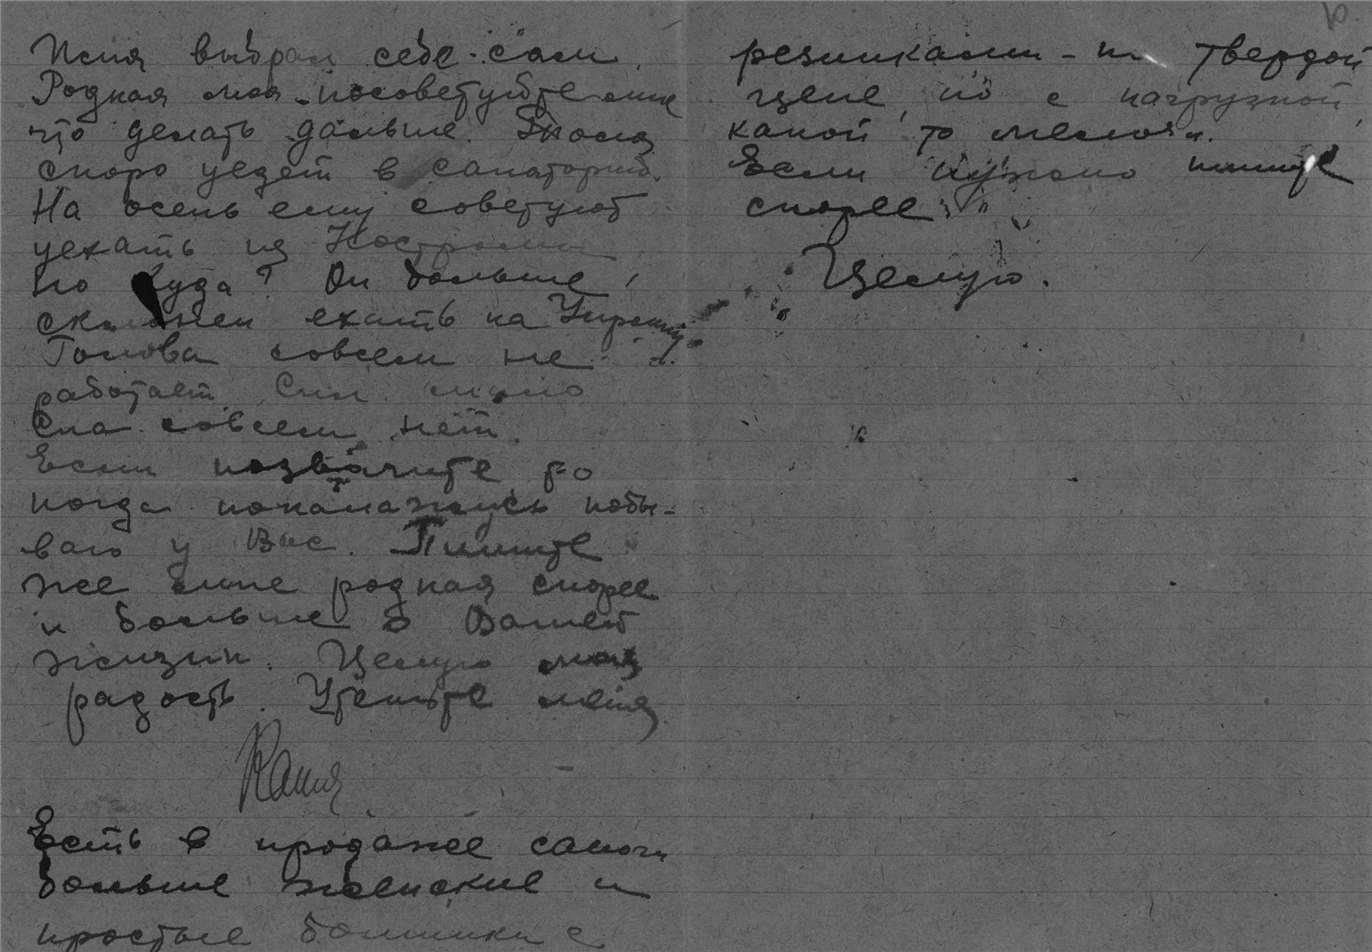 Имя выбрал себе сам.
Родная моя посоветуйте мне
что делать дальше.
скоро уедет в санаторий.
На осень ему советуют
уехать из Костромы
но куда? Он больше
склонен ехать на Украину
Голова совсем не
работает. Сил мало
Сна совсем нет.
Если позволите, то
когда поналажусь побы-
ваю у Вас. Пишите
же мне родная скорее
и больше о Вашей
жизни. Целую моя
радость. Утешьте меня
Катя
Есть в продаже сапоги
больше женские и
простые ботинки с
резинками - по твердой
цене, но с нагрузкой
какой то мелочи.
Если нужно пишите
скорее.
Целую.